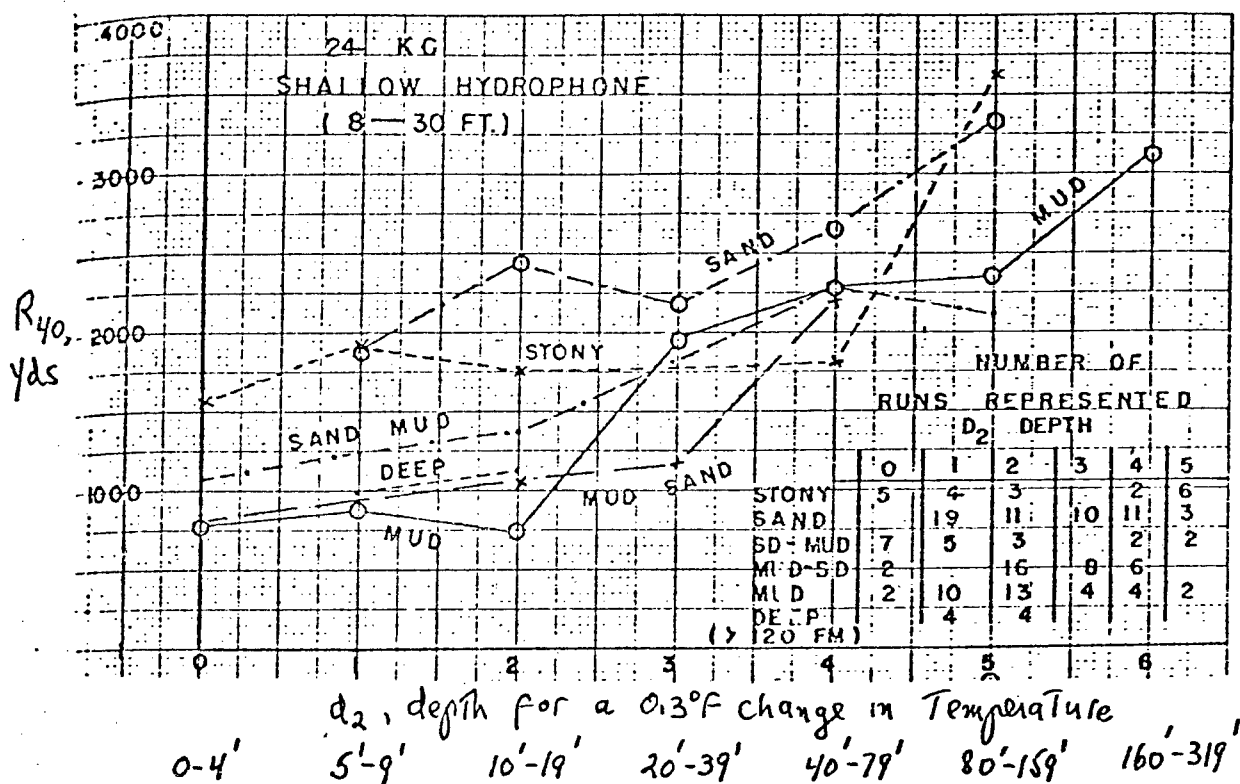 4000
24 KC
SHALLOW HYDROPHONE
( 8 — 30 FT.)
3000
MUD
SAND
R40,
yds
2000
STONY
SAND MUD
DEEP
1000
MUD SAND
MUD
NUMBER OF
RUNS REPRESENTED
D2 DEPTH
0 1 2 3 4 5
STONY 5 4 3 2 6
SAND 19 11 10 11 3
SD-MUD 7 5 3 2 2
MUD-SD 2 16 8 6
MUD 2 10 13 4 4 2
DEEP 4 4
(> 120 FM)
0 1 2 3 4 5 6
d2, depth for a 0.3°F change in Temperature
0-4' 5'-9' 10'-19' 20'-39' 40'-79' 80'-159' 160'-319'